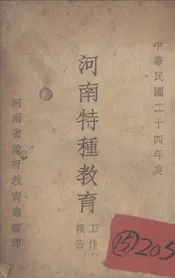 中華民國二十四年度
河南特種教育
工作
報告
河南省政府教育廳編印
15 205